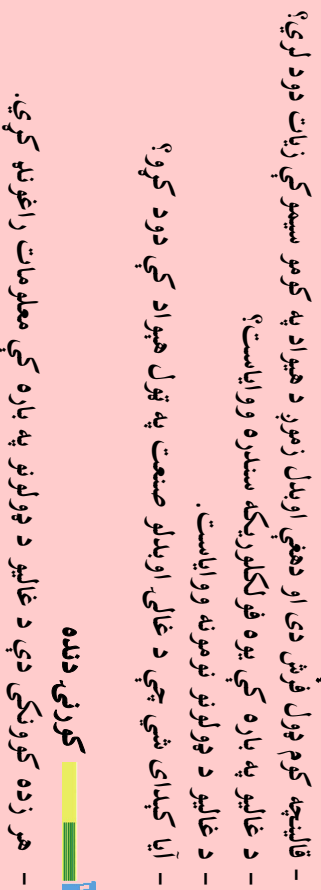 - قالینچه کوم ډول فرش دی او دهغې اوبدل زموږ د هېواد په کومو سیمو کې زیات دود لري؟
- د غالیو په باره کې یوه فولکلوریکه سندره ووایاست؟
- د غالیو د ډولونو نومونه ووایاست.
- آیا کېدای شي چې د غالۍ اوبدلو صنعت په ټول هېواد کې دود کړو؟
کورنۍ دنده
- هر زده کوونکی دې د غالیو د ډولونو په باره کې معلومات راغونډ کړي.